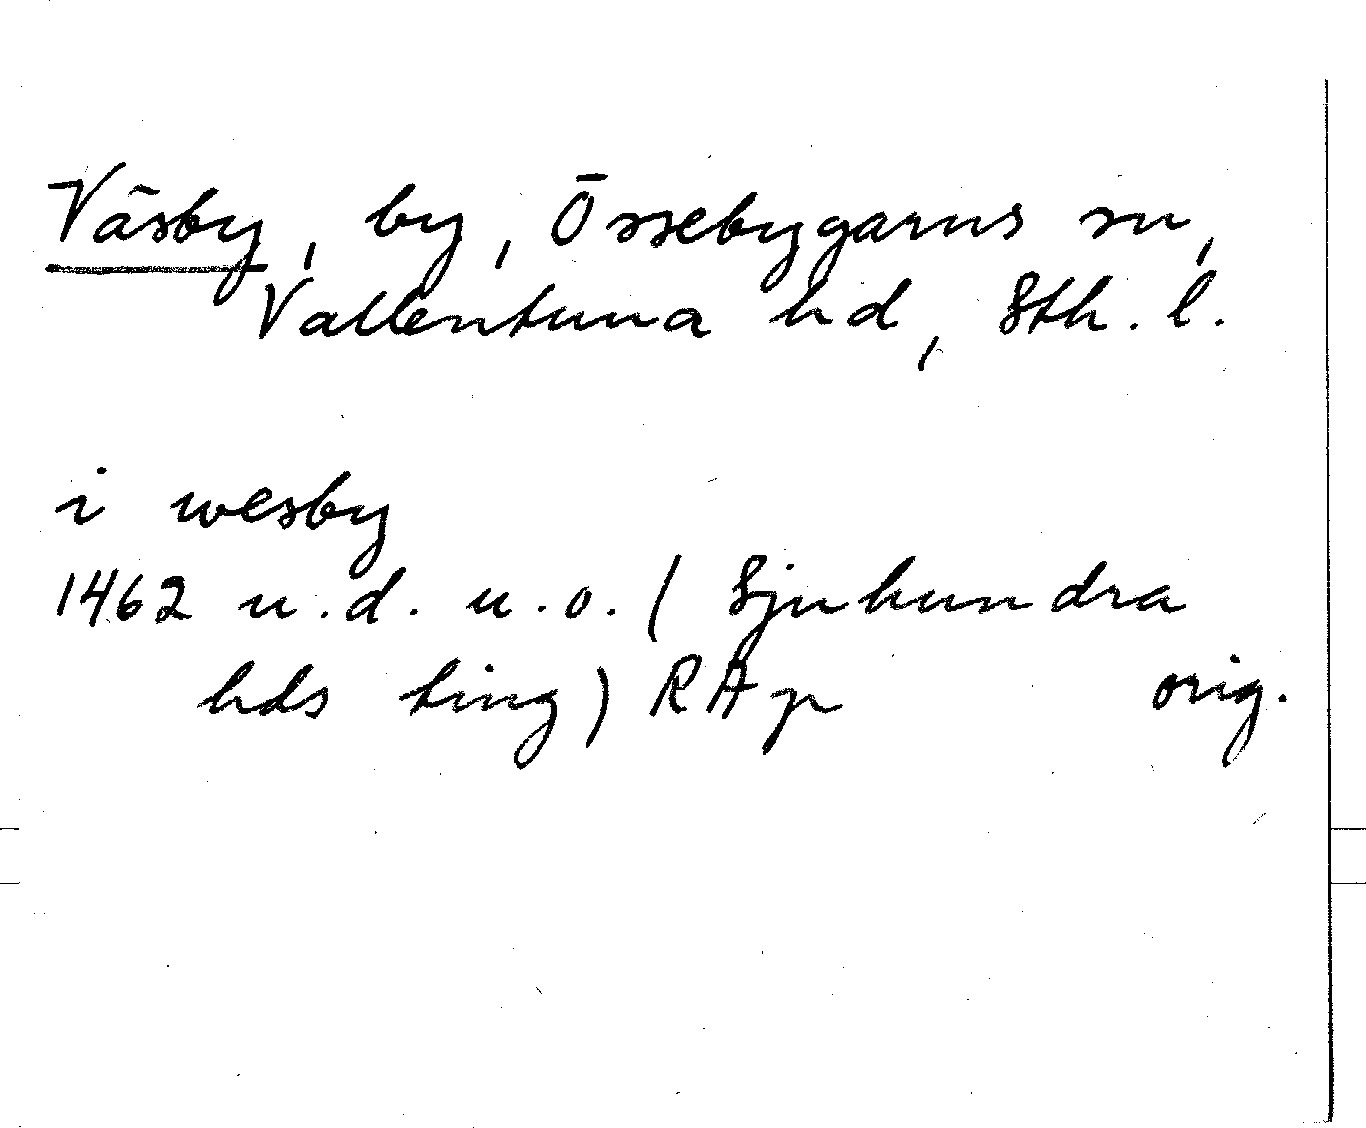 Väsby, by, Össebygarns sn,
Vallentuna hd, Sth. l.
i wesby
1462 u.d. u.o. (Sjuhundra
hds ting) RAp orig.